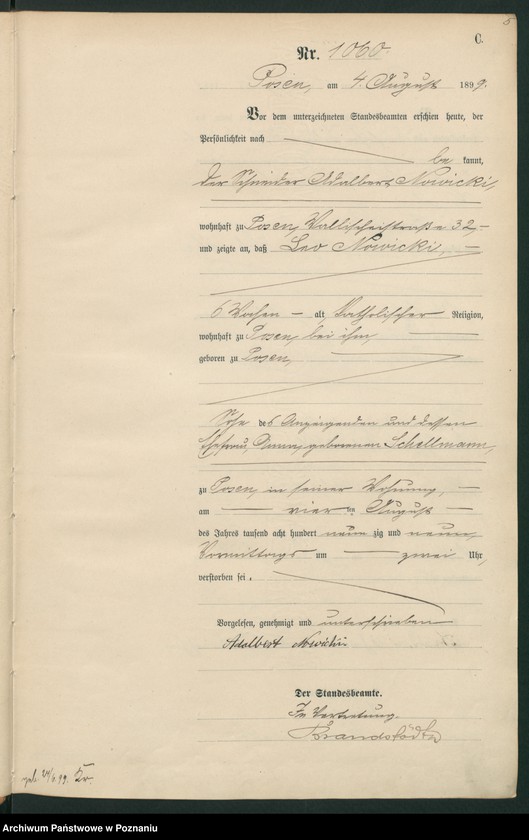 C.
Nr. 1060.
Posen, am 4. August 1899.
Vor dem unterzeichneten Standesbeamten erschien heute, der
Persönlichkeit nach
be kannt,
der Schneider Adalbert Nowicki,
wohnhaft zu Posen, Wallischeistraße 32,
und zeigte an, daß Leo Nowicki,
6 Wochen alt, katholischer Religion,
wohnhaft zu Posen, bei ihm,
geboren zu Posen,
Sohn des Anzeigenden und dessen
Ehefrau, geborenen Schellmann,
zu Posen, in seiner Wohnung,
am vier ten August
des Jahres tausend acht hundert neun zig und neun,
Vormittags um zwei Uhr,
verstorben sei.
Vorgelesen, genehmigt und unterschrieben
Adalbert Nowicki
Der Standesbeamte.
In Vertretung.
Archiwum Państwowe w Poznaniu